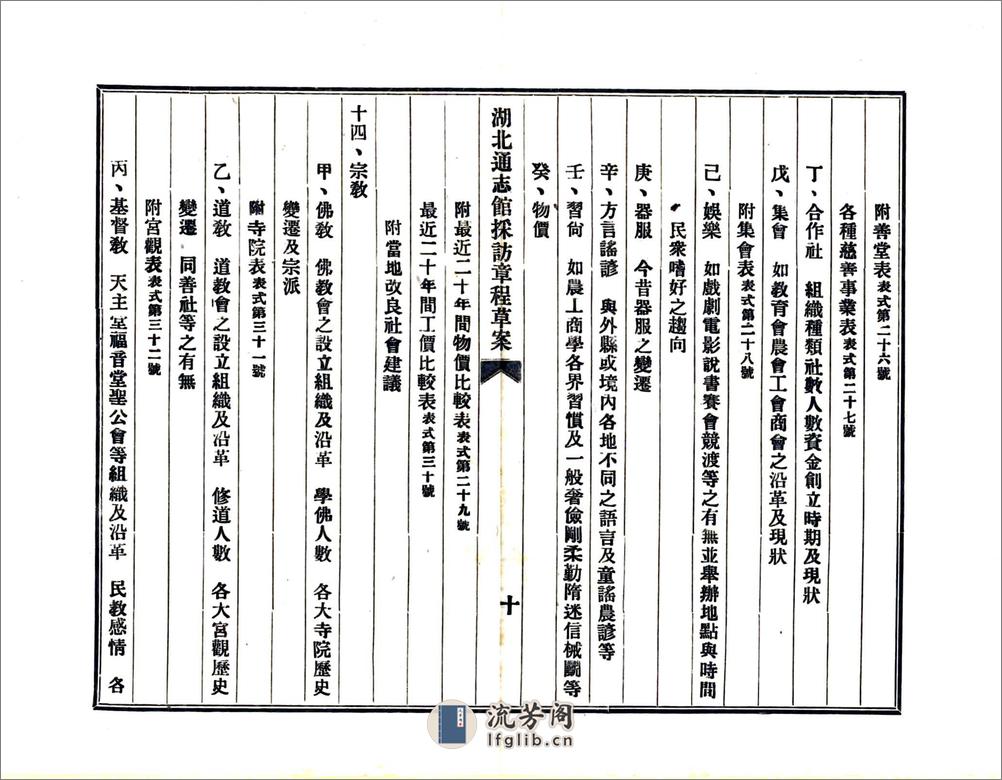 附善堂表表式第二十六號
各種慈善事業表表式第二十七號
丁、合作社　組織種類社數人數資金創立時期及現狀
戊、集會　如教育會農會工會商會之沿革及現狀
附集會表表式第二十八號
己、娛樂　如戲劇電影說書賽會競渡等之有無並舉辦地點與時間
民衆嗜好之趨向
庚、器服　今昔器服之變遷
辛、方言謠諺　與外縣或境內各地不同之語言及童謠農諺等
壬、習尙　如農工商學各界習慣及一般奢儉剛柔勤隋迷信械鬭等
癸、物價
湖北通志館採訪章程草案
十
附最近二十年間物價比較表表式第二十九號
最近二十年間工價比較表表式第三十號
附當地改良社會建議
十四、宗教
甲、佛教　佛教會之設立組織及沿革　學佛人數　各大寺院歷史
變遷及宗派
附寺院表表式第三十一號
乙、道教　道教會之設立組織及沿革　修道人數　各大宮觀歷史
變遷　同善社等之有無
附宮觀表表式第三十二號
丙、基督教　天主堂福音堂聖公會等組織及沿革　民教感情　各
流芳阁
lfglib.cn